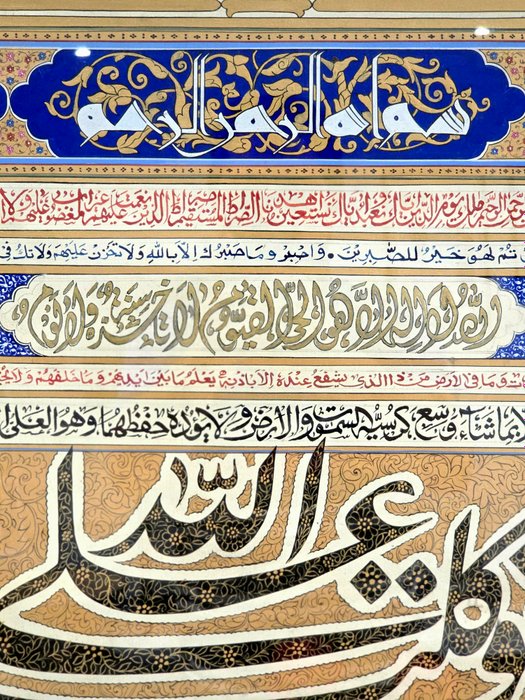 بسم الله الرحمن الرحيم
الرحمن الرحيم ملك يوم الدين اياك نعبد واياك نستعين اهدنا الصراط المستقيم صراط الذين انعمت عليهم غير المغضوب عليهم ولا
تم لهو خير للصبرين واصبر وما صبرك الا بالله ولا تحزن عليهم ولا تك في
الله لا اله الا هو الحي القيوم لا تاخذه سنة ولا نوم
وما في الارض من ذا الذي يشفع عنده الا باذنه يعلم ما بين ايديهم وما خلفهم ولا
بما شاء وسع كرسيه السموت والارض ولا يوده حفظهما وهو العلى
على الله